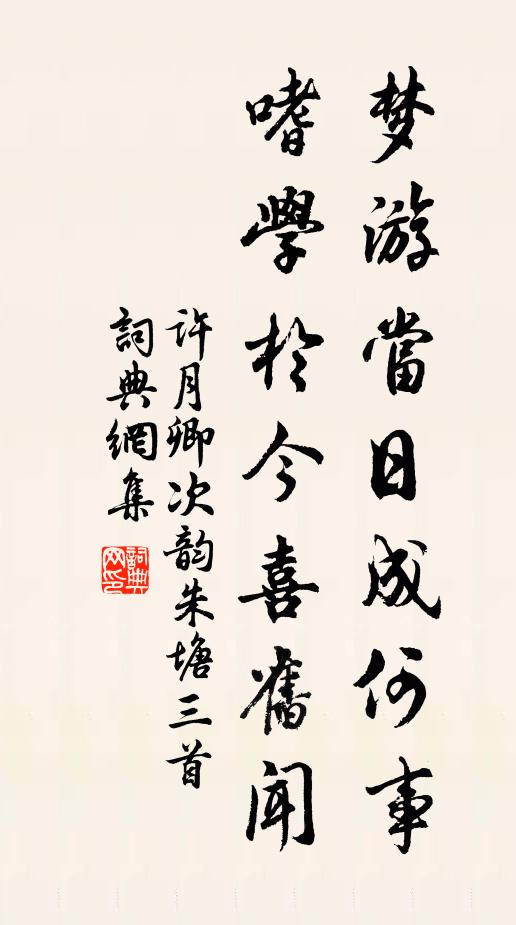 梦游當日成何事
嗜學於今喜舊聞
许月卿次韵朱塘三首
詞典網集
詞典网印